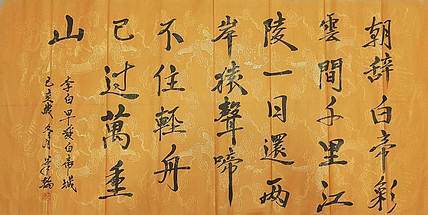 朝辞白帝彩
雲間千里江
陵一日還两
岸猿聲啼
不住軽舟
已过萬重
山
李白早發白帝城
己亥歲冬月